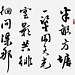 半畝方塘
雲影共徘
徊問渠那